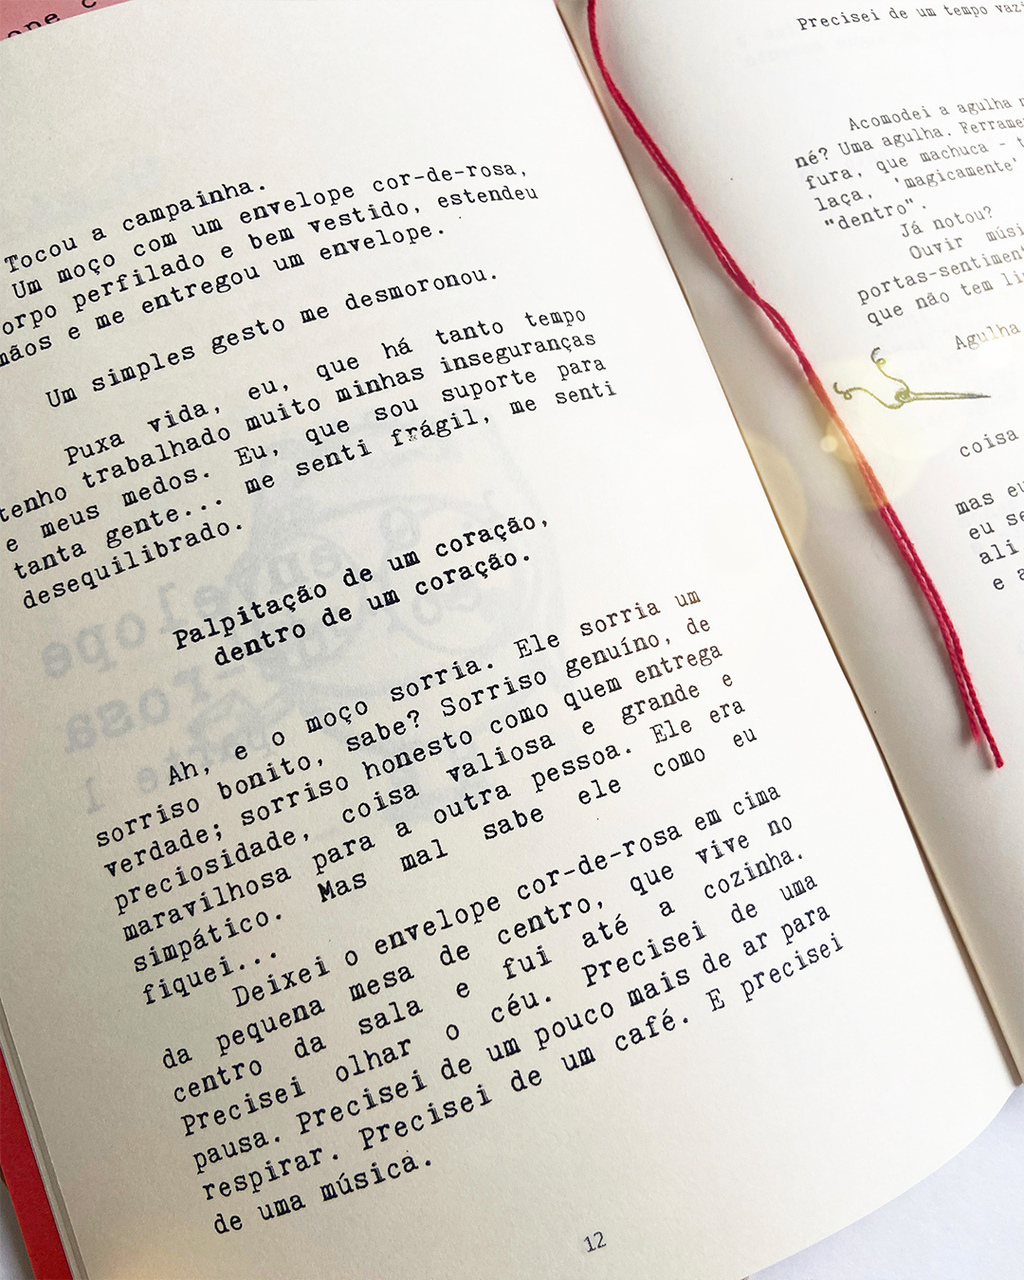 Tocou a campainha.
Um moço com um envelope cor-de-rosa,
orpo perfilado e bem vestido, estendeu
mãos e me entregou um envelope.
Um simples gesto me desmoronou.
Puxa vida, eu, que há tanto tempo
tenho trabalhado muito minhas inseguranças
e meus medos. Eu, que sou suporte para
tanta gente... me senti frágil, me senti
desequilibrado.
Palpitação de um coração,
dentro de um coração.
Ah, e o moço sorria. Ele sorria um
sorriso bonito, sabe? Sorriso genuíno, de
verdade; sorriso honesto como quem entrega
preciosidade, coisa valiosa e grande e
maravilhosa para a outra pessoa. Ele era
simpático. Mas mal sabe ele como eu
fiquei...
Deixei o envelope cor-de-rosa em cima
da pequena mesa de centro, que vive no
centro da sala e fui até a cozinha.
Precisei olhar o céu. Precisei de uma
pausa. Precisei de um pouco mais de ar para
respirar. Precisei de um café. E precisei
de uma música.
12
Precisei de um tempo vazi
Acomodei a agulha
né? Uma agulha. Ferrame
fura, que machuca -
laça, 'magicamente'
"dentro".
Já notou?
Ouvir músi
portas-sentiment
que não tem li
Agulha
coisa
mas eu
eu se
ali
e a